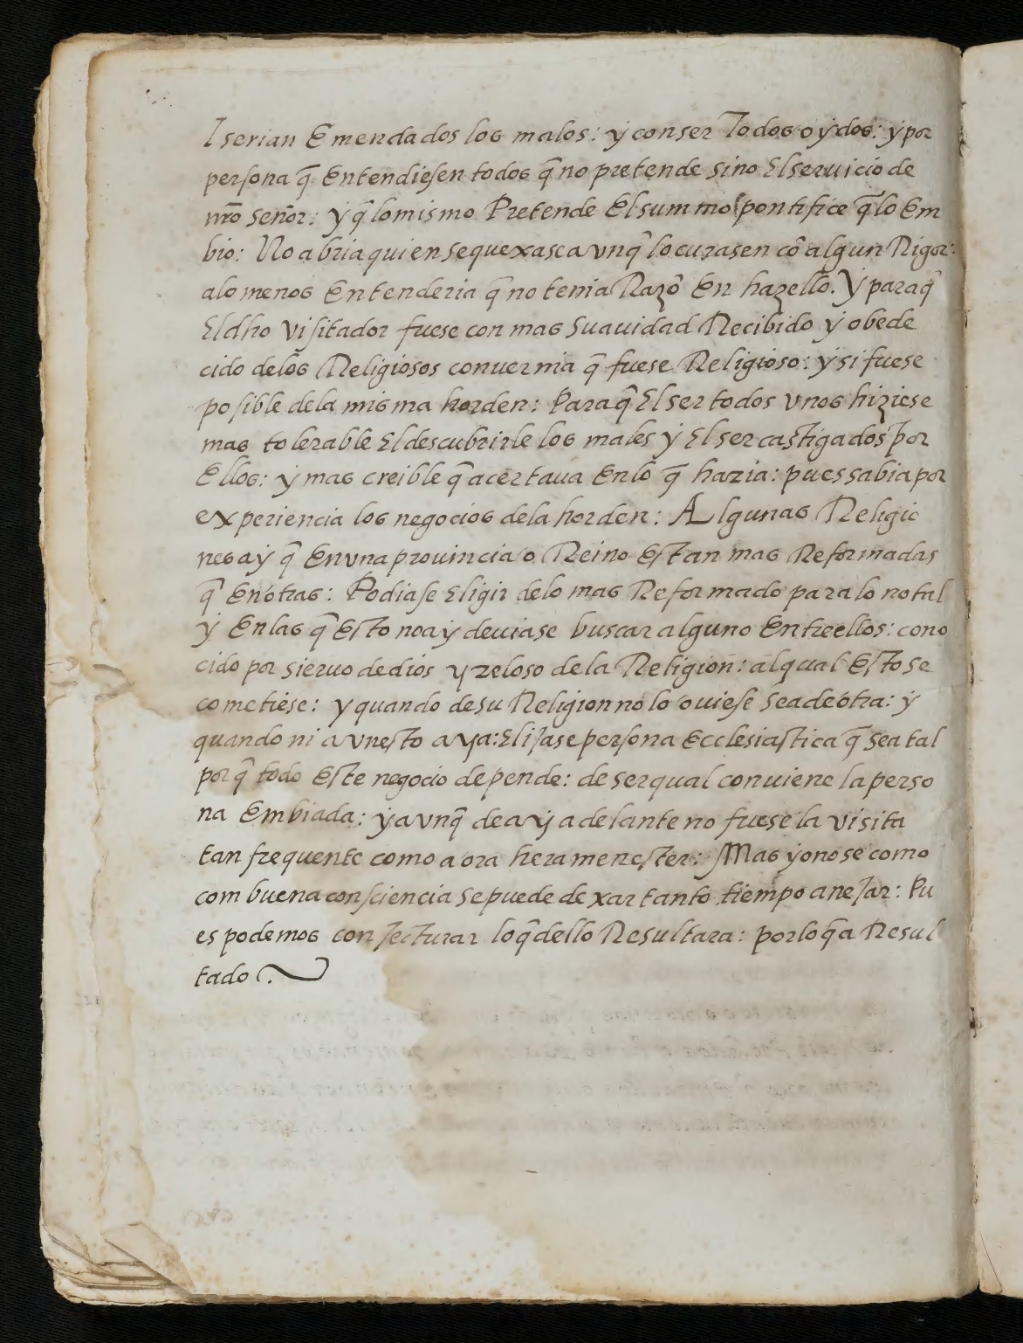 I serian Emendados los malos: y con ser Todos oydos: y por
persona q̃ Entendiesen todos q̃ no pretende sino El seruicio de
nr̃o señor: y q̃ lo mismo Pretende El summo pontifice q̃ lo Em
bio: No abria quien se quexase avnq̃ lo curasen cõ algun Rigor:
a lo menos Entenderia q̃ no tenia Razõ En hazello. Y para q̃
El dho visitador fuese con mas suauidad Recibido y obede
cido de los Religiosos conuernia q̃ fuese Religioso: y si fuese
posible de la misma horden: Para q̃ El ser todos vnos hiziese
mas tolerable El descubrirle los males y El ser castigados por
Ellos: y mas creible q̃ acertaua En lo q̃ hazia: pues sabia por
experiencia los negocios de la horden: Algunas Religio
nes ay q̃ En vna prouincia o Reino Estan mas Reformadas
q̃ En otras: Podiase Eligir de lo mas Reformado para lo no tal
y En las q̃ Esto no ay deuiase buscar alguno Entre ellos: cono
cido por sieruo de dios y zeloso de la Religion: al qual Esto se
cometiese: y quando de su Religion no lo ouiese sea de otra: y
quando ni avn esto aya: Elijase persona Ecclesiastica q̃ sea tal
porq̃ todo Este negocio depende: de ser qual conuiene la perso
na Embiada: y avnq̃ de ay adelante no fuese la visita
tan frequente como aora hera menester: Mas yo no se como
com buena consciencia se puede dexar tanto tiempo anejar: Pu
es podemos conjecturar lo q̃ dello Resultara: por lo q̃ a Resul
tado.